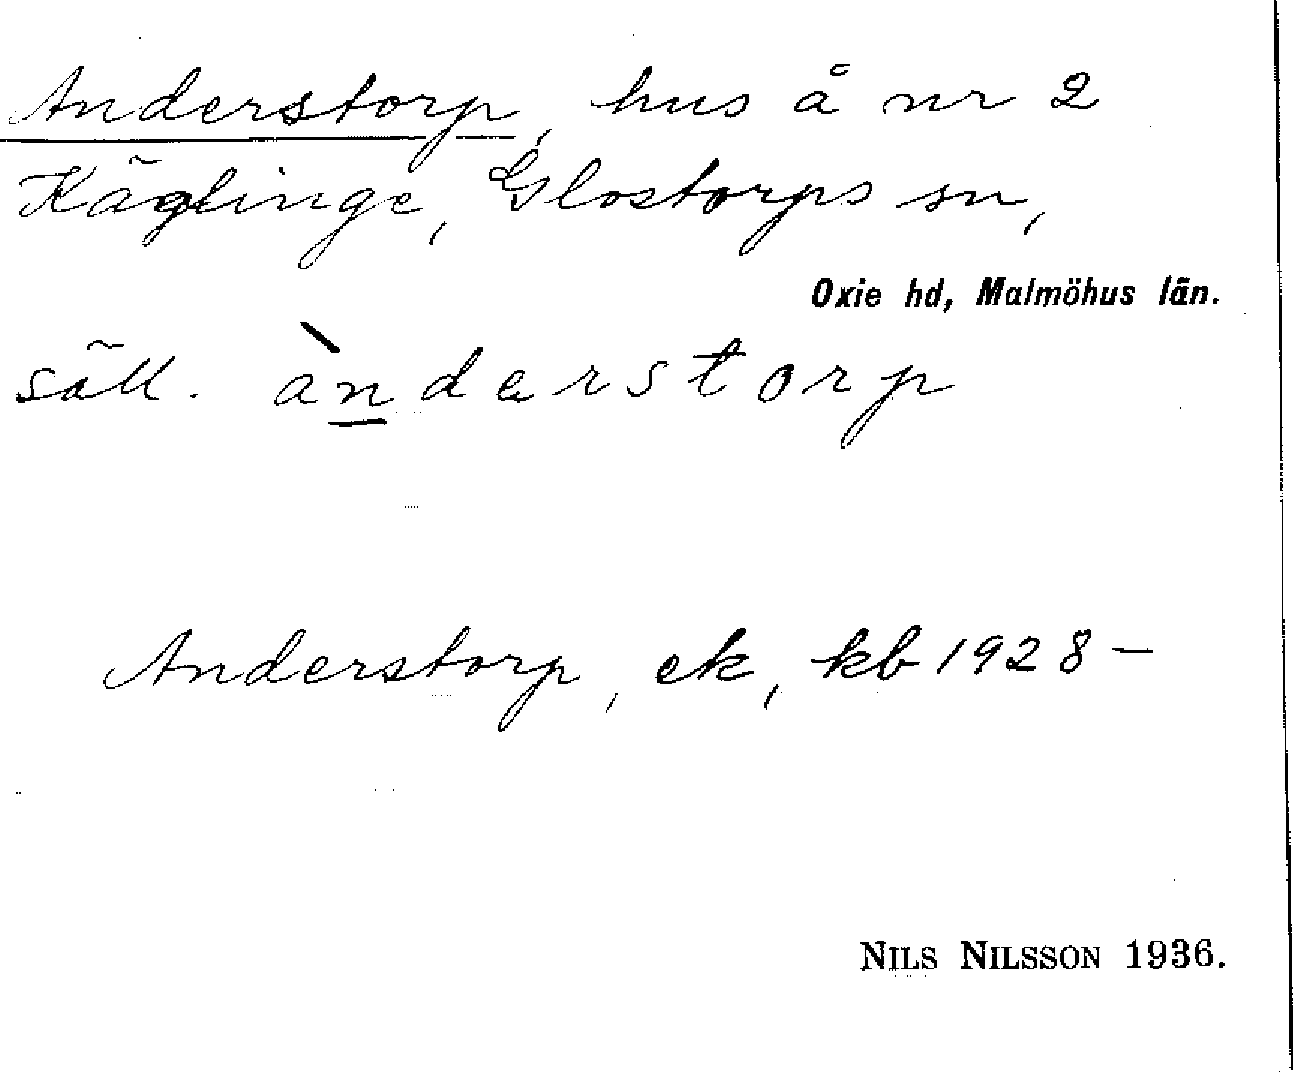 Anderstorp, hus å nr 2
Käglinge, Glostorps sn,
Oxie hd, Malmöhus län.
säll. àn̲derstorp
Anderstorp, ek, kb 1928–
NILS NILSSON 1936.